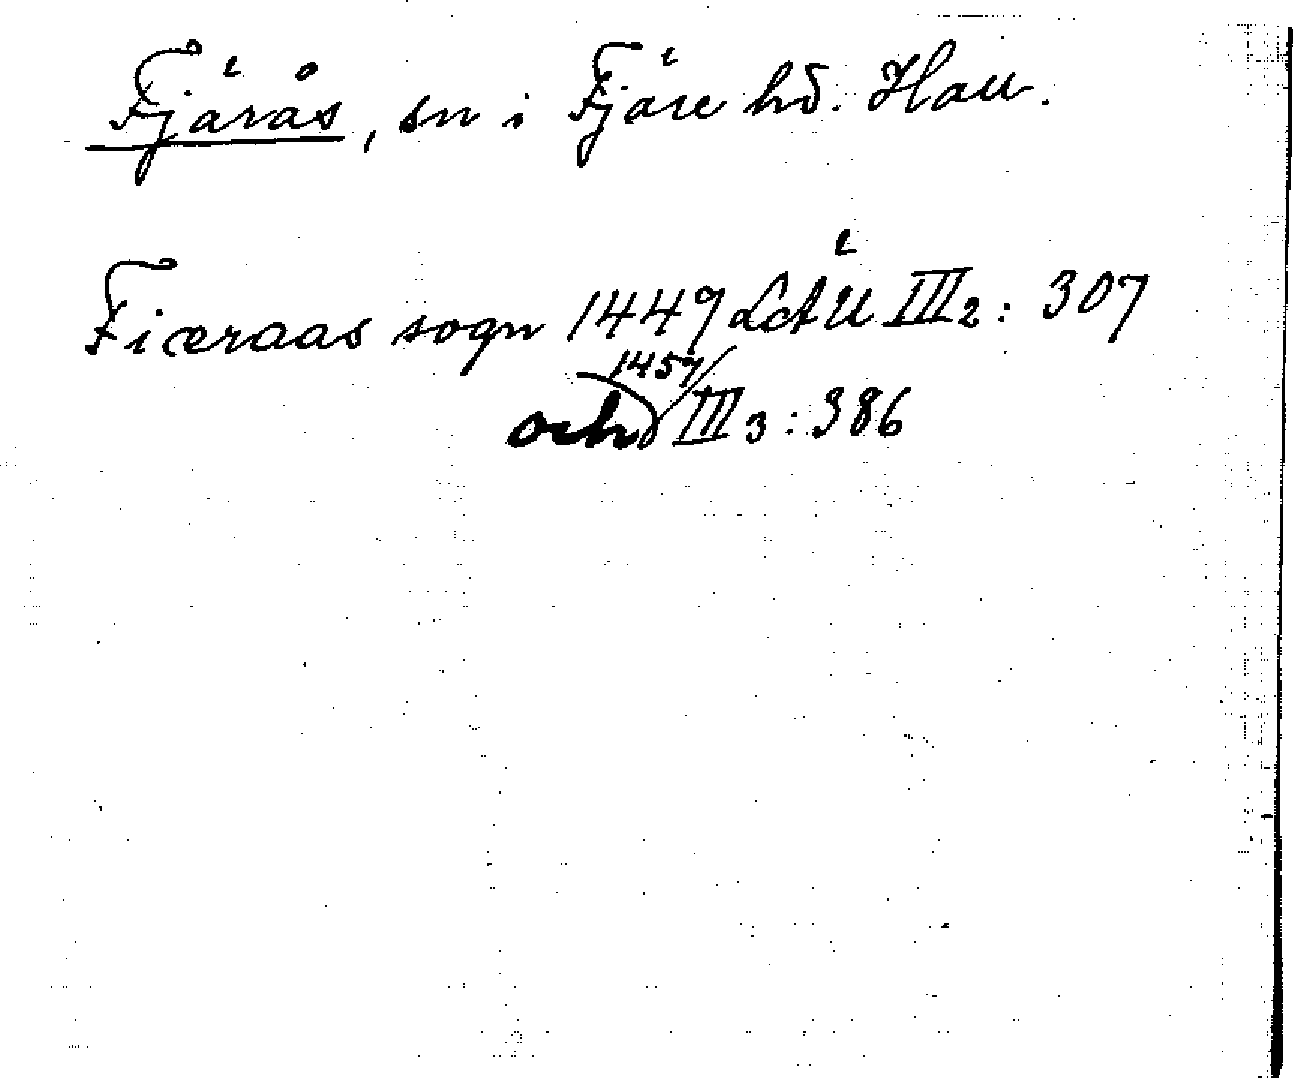 Fjärås, sn i Fjäre hd. Hall.
Fiæraas sogn 1449 LAÄ III2: 307
och 1457 III3: 386